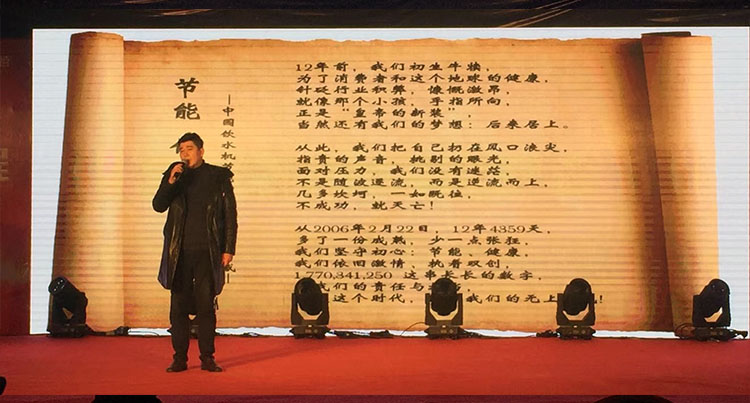 节能
——中国饮水机
12年前，我们初生牛犊，
为了消费者和这个地球的健康，
针砭行业积弊，慷慨激昂，
就像那个小孩，手指所向，
正是“皇帝的新装”，
当然还有我们的梦想：后来居上。
从此，我们把自己扔在风口浪尖，
指责的声音，挑剔的眼光，
面对压力，我们没有迷茫，
不是随波逐流，而是逆流而上，
几多坎坷，一如既往，
不成功，就灭亡！
从2006年2月22日，12年4359天，
多了一份成熟，少一点张狂，
我们坚守初心：节能、健康，
我们依旧激情，执着双创，
1,770,341,250 这串长长的数字，
我们的责任与
这个时代，我们的无上